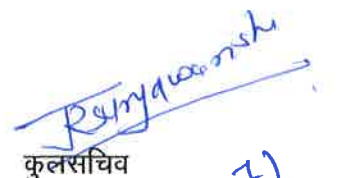 RSuryawanshi
कुलसचिव